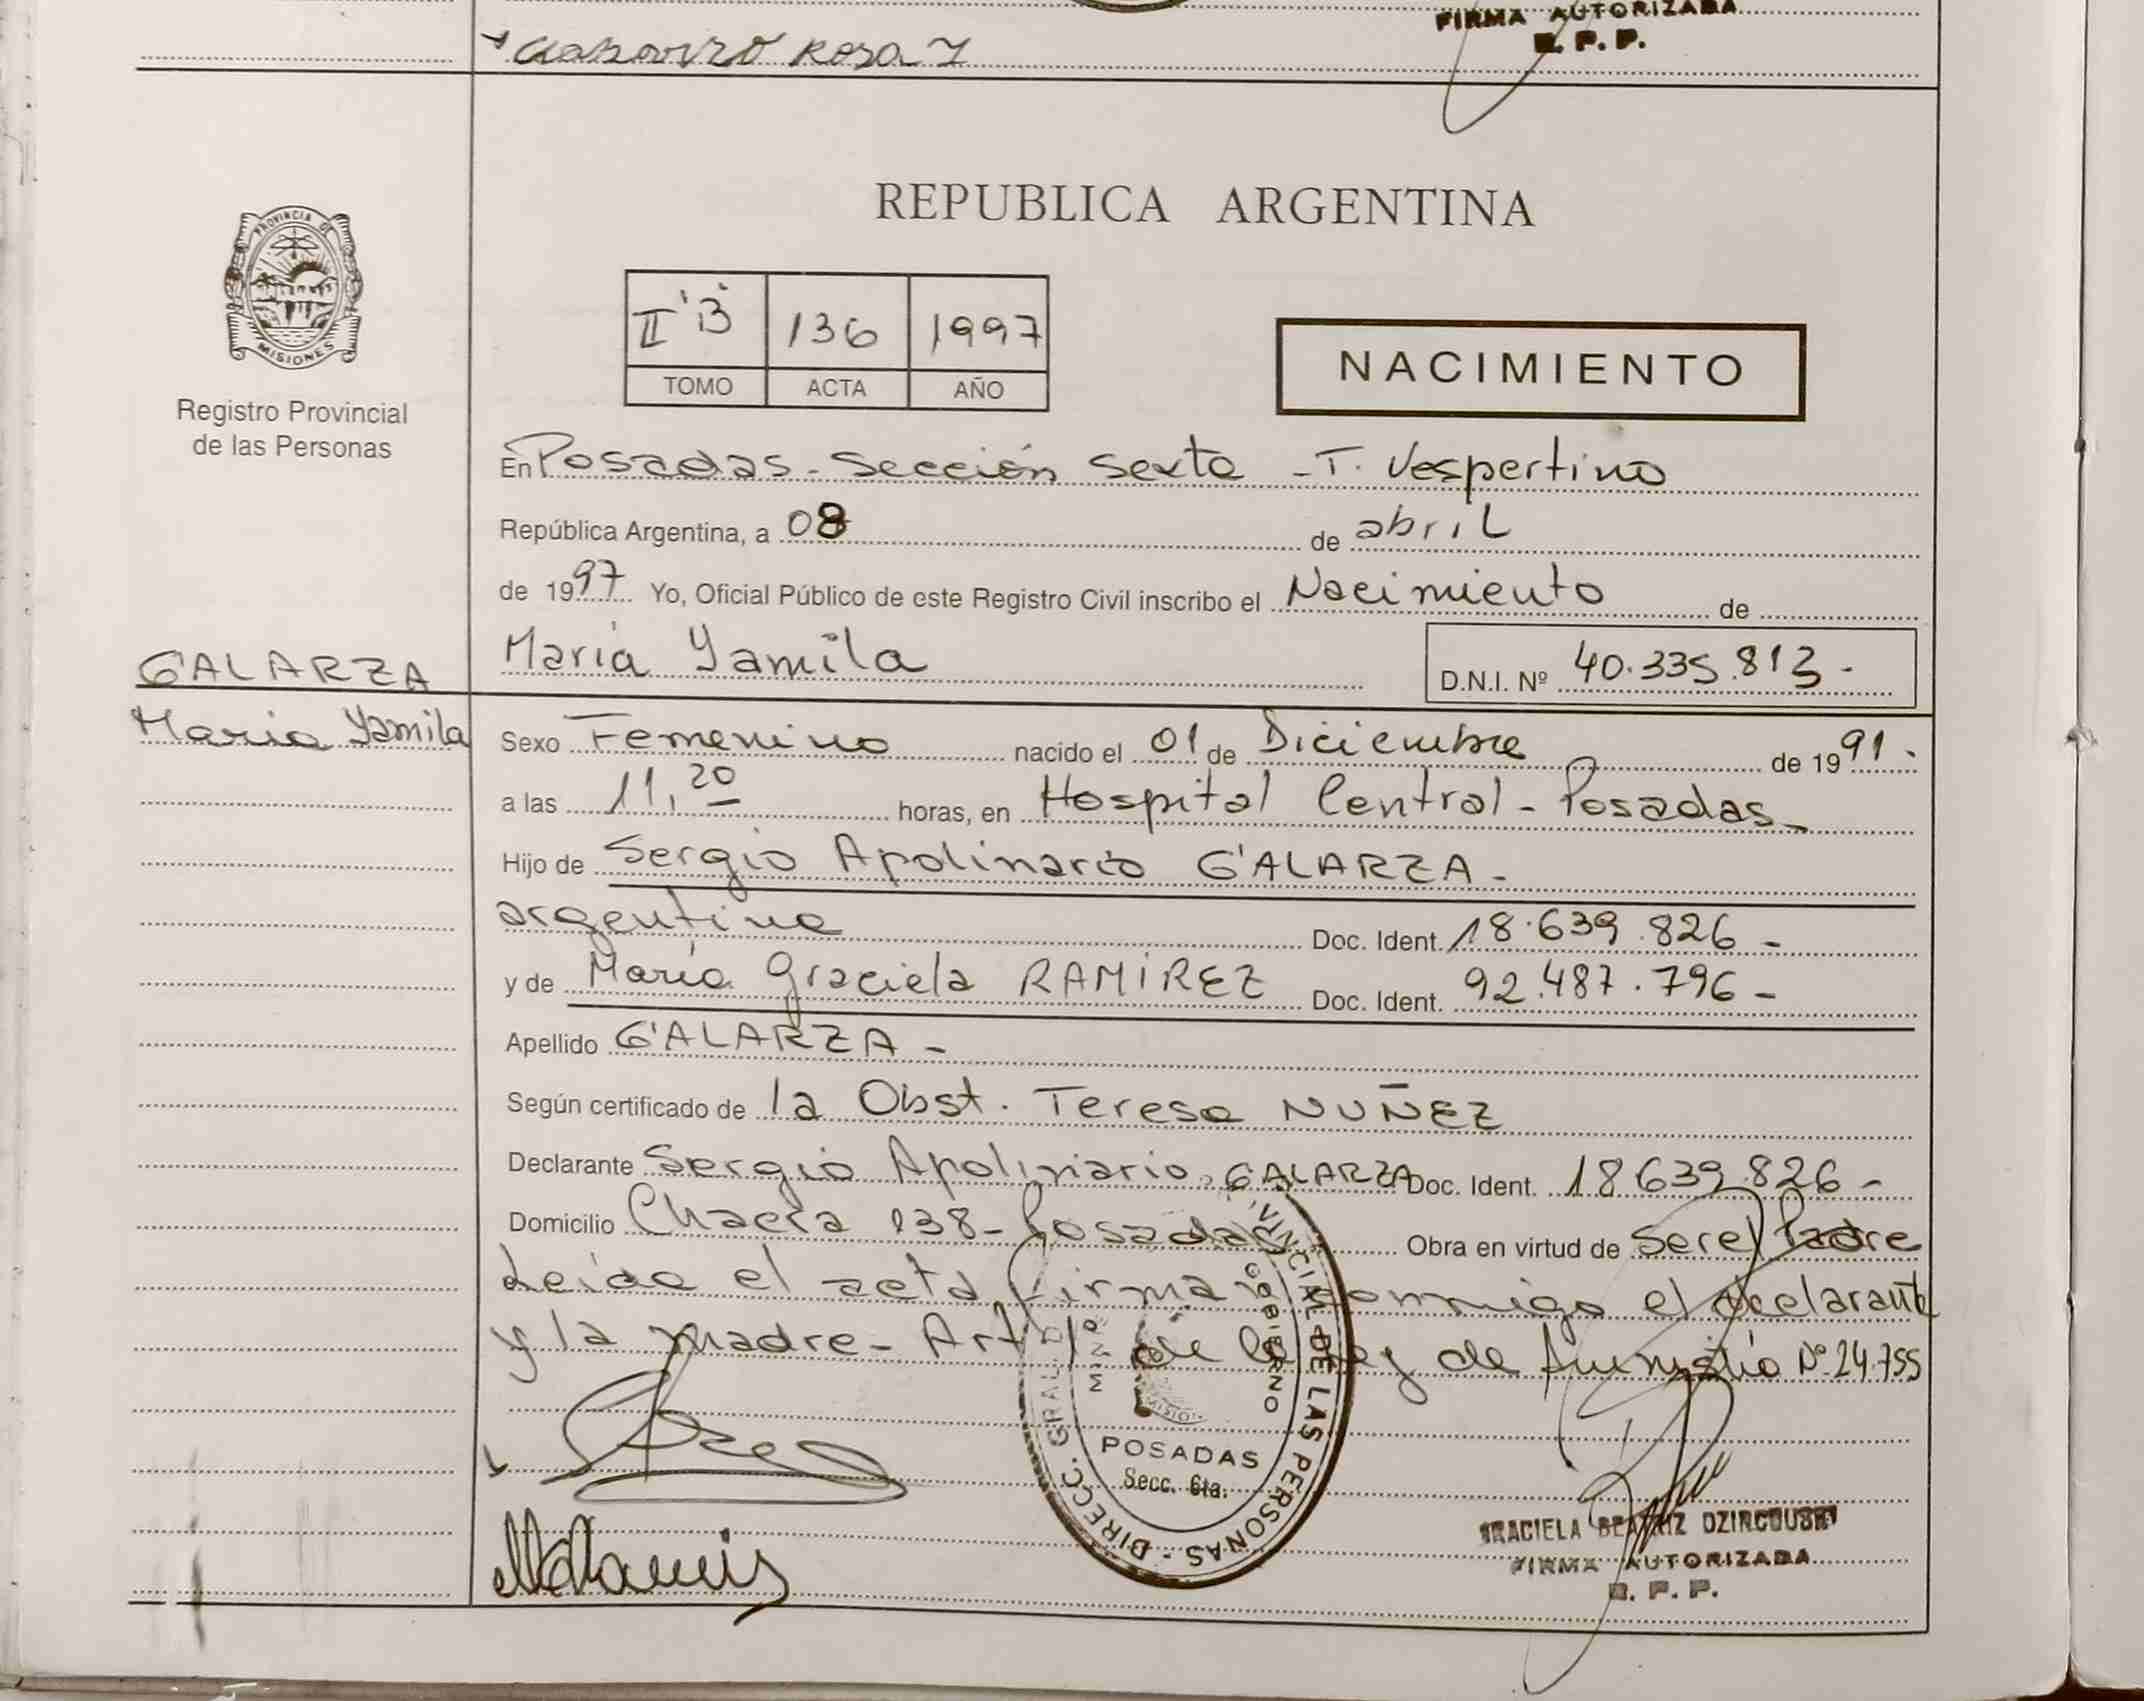 FIRMA AUTORIZADA
R. P. P.
Rosa
PROVINCIA DE
MISIONES
Registro Provincial
de las Personas
REPUBLICA ARGENTINA
II "B" 136 1997
TOMO ACTA AÑO
NACIMIENTO
En Posadas - Sección Sexta - T. Vespertino
República Argentina, a 08 de abril
de 1997 Yo, Oficial Público de este Registro Civil inscribo el Nacimiento de
María Yamila D.N.I. Nº 40.335.813-
GALARZA
Maria Yamila
Sexo Femenino nacido el 01 de Diciembre de 1991.
a las 11,20 horas, en Hospital Central - Posadas-
Hijo de Sergio Apolinario GALARZA-
argentino Doc. Ident. 18.639.826-
y de María Graciela RAMÍREZ Doc. Ident. 92.487.796-
Apellido GALARZA-
Según certificado de la Obst. Teresa NUÑEZ
Declarante Sergio Apolinario GALARZA Doc. Ident. 18639.826-
Domicilio Chacra 138- Posadas Obra en virtud de ser el Padre
Leída el acta firma conmigo el declarante
y la madre- Art de la Ley de Amnistía Nº 24.755
DIRECC. GRAL. PROVINCIAL DE LAS PERSONAS
GOBIERNO
POSADAS
Secc. 6ta.
GRACIELA BEATRIZ
FIRMA AUTORIZADA
R. P. P.